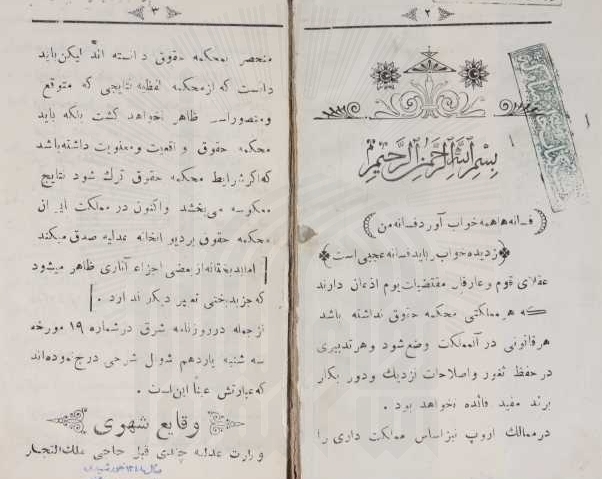 ۲
بسم الله الرحمن الرحیم
فسانه‌ها همه خواب آورد فسانه من
زدیده خواب رباید فسانه عجبی است
عقلای قوم و عارفان مقتضیات یوم اذعان دارند
که هر مملکتی محکمه حقوق نداشته باشد
هر قانونی در آنمملکت وضع شود و هر تدبیری
در حفظ ثغور و اصلاحات نزدیك ودور بکار
برند مفید فائده نخواهد بود .
در ممالك اروپ نیز اساس مملکت داری را
۳
منحصر بمحکمه حقوق دانسته اند لیکن باید
دانست که از محکمه لفظیه نتایجی که متوقع
ومنصور است ظاهر نخواهد گشت بلکه باید
محکمه حقوق واقعیت ومعنویت داشته باشد
که اگر شرایط محکمه حقوق ترك شود نتایج
معکوسه می‌بخشد واکنون در مملکت ایران
محکمه حقوق بر دیوانخانه عدلیه صدق میکند
اما بدبختانه از بعضی اجزاء آثاری ظاهر میشود
که جز بدبختی تعبیر دیگر ندارد .
از جمله در روزنامه شرق در شماره ۱۹ مورخه
سه شنبه یازدهم شوال شرحی درج نموده‌اند
که عبارتش عینا این است .
وقایع شهری
وزارت عدلیه چندی قبل حاجی ملك التجار